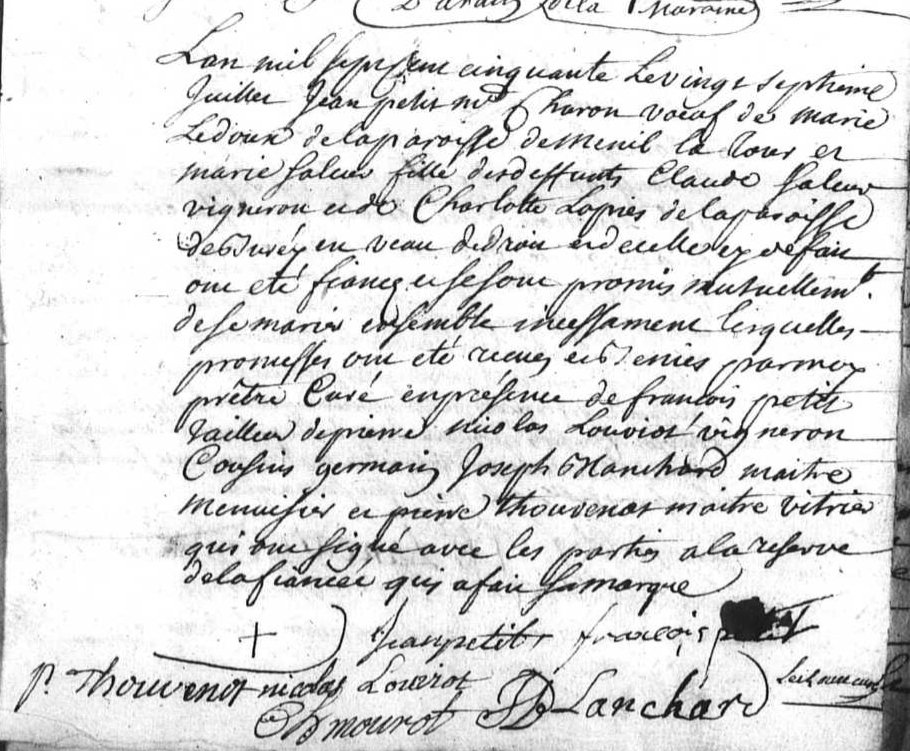 de la Maraine
L'an mil sept cent cinquante Le vingt septieme
Juillet Jean petit md Charon voeuf de marie
Ledoux de la paroisse de Menil la Tour et
marie saleur fille des deffunts Claude saleur
vigneron et de Charlotte Lapres de la paroisse
de en veau de droit et de celle cy de fait
ont été fiancez se sont promis mutuellemt
de se marier ensemble incessament lesquelles
promesses ont été recues et benies par moy
prêtre Curé en présence de francois petit
tailleur de pierre nicolas Louviot vigneron
Cousins germain Joseph Blanchard maitre
menuisier et pierre thouvenot maitre vitrier
qui ont signé avec les parties a la reserve
de la fiancée qui a fait sa marque
+ Jean petit francois petit
p. Thouvenot nicolas Louviot
mourot J Blanchard